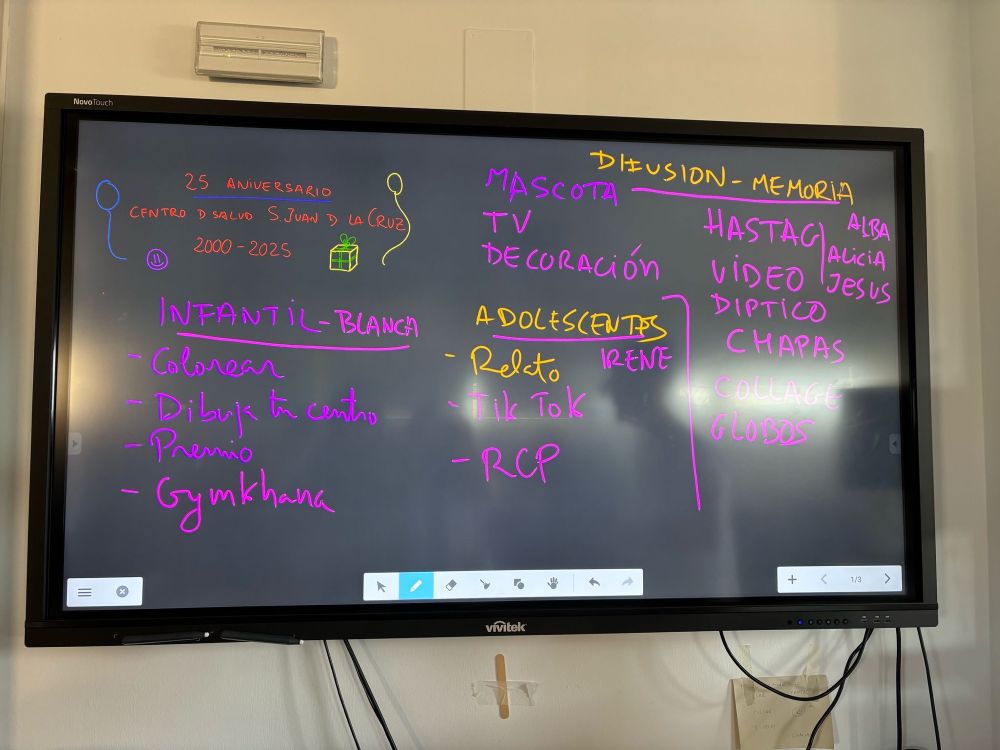 NovoTouch
25 ANIVERSARIO
CENTRO D SALUD S.JUAN D LA CRUZ
2000-2025
DIFUSION - MEMORIA
MASCOTA
TV
DECORACIÓN
HASTAG
VIDEO
ALBA
ALICIA
JESUS
DIPTICO
CHAPAS
COLLAGE
GLOBOS
INFANTIL - BLANCA
- Colorear
- Dibuja tu centro
- Premio
- Gymkhana
ADOLESCENTES
IRENE
- Relato
- Tik Tok
- RCP
1/3
vivitek